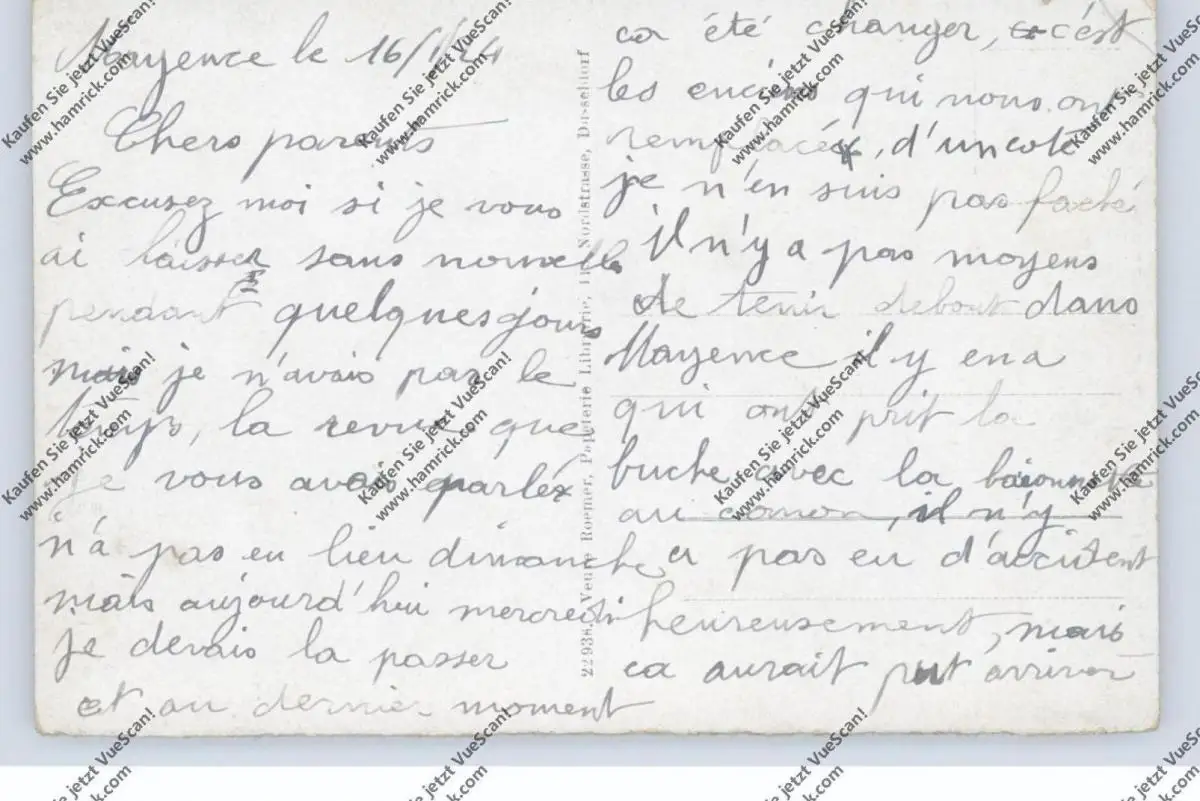 Mayence le 16/1/24
Chers parents
Excusez moi si je vous
ai laisser sans nouvelle
pendant quelques jours
mais je n'avais pas le
temps, la revue que
je vous avais parlé
n'a pas eu lieu dimanche
mais aujourd'hui mercredi
je devais la passer
et au dernier moment
ca été changer, c'est
les encins qui nous ont
remplacé, d'un coté
je n'en suis pas faché
il n'y a pas moyens
de tenir debout dans
Mayence il y en a
qui ont prit la
buche avec la baionnette
au canon, il n'y
a pas eu d'accident
heureusement, mais
ca aurait put arriver
22938. Veuve Roemer, Papeterie Librairie, Nordstrasse, Dusseldorf
Kaufen Sie jetzt VueScan!
www.hamrick.com